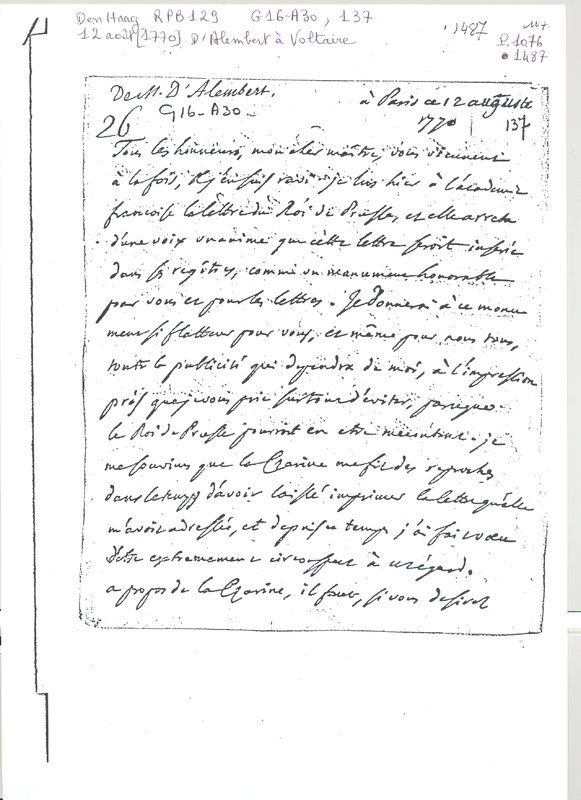 Den Haag RPB129 G16-A30, 137
12 août [1770] D'Alembert à Voltaire
.1487
P.1076
•1487
De M. D'Alembert.
G16-A30-
à Paris ce 12 auguste
1770
137
26
Tous les honneurs, mon cher maître, vous viennent
à la fois, et j'en suis ravi. Je lus hier à l'academie
françoise la lettre du Roi de Prusse, et elle arreta
d'une voix unanime que cette lettre seroit inserée
dans ses registres, comme un monument honorable
pour vous et pour les lettres. Je donnerai à ce monu
ment si flatteur pour vous, et même pour nous tous,
toute la publicité qui dependra de moi, à l'impression
près que je vous prie surtout d'eviter, parceque
le Roi de Prusse pourroit en etre mecontent. je
me souviens que la Czarine me fit des reproches
dans le temps d'avoir laissé imprimer la lettre qu'elle
m'avoit adressée, et depuis ce temps j'ai fait voeu
d'etre extremement circonspect à cet égard.
a propos de la Czarine, il faut, si vous desirez